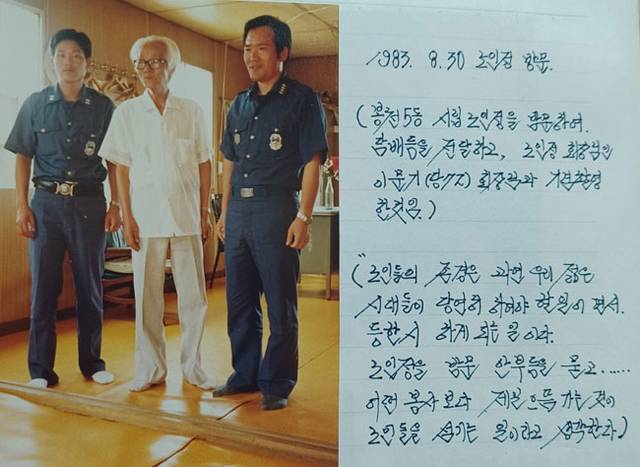 1983. 8. 30 노인정 방문.
(봉천5동 시립 노인정을 방문하여.
담배등을 전달하고, 노인정 회장님인
이문기(당72) 회장님과 기념촬영
한것임.)
("노인들의 존경은 과연 우리 젊은
시대들이 당연히 하여야 할 일이 면서.
등한시 하게 되는 일이다.
노인정을 방문 안부등을 묻고......
어떤 봉사 보다 제일 으뜸 가는 것이
노인들을 섬기는 일이라고 생각한다.)